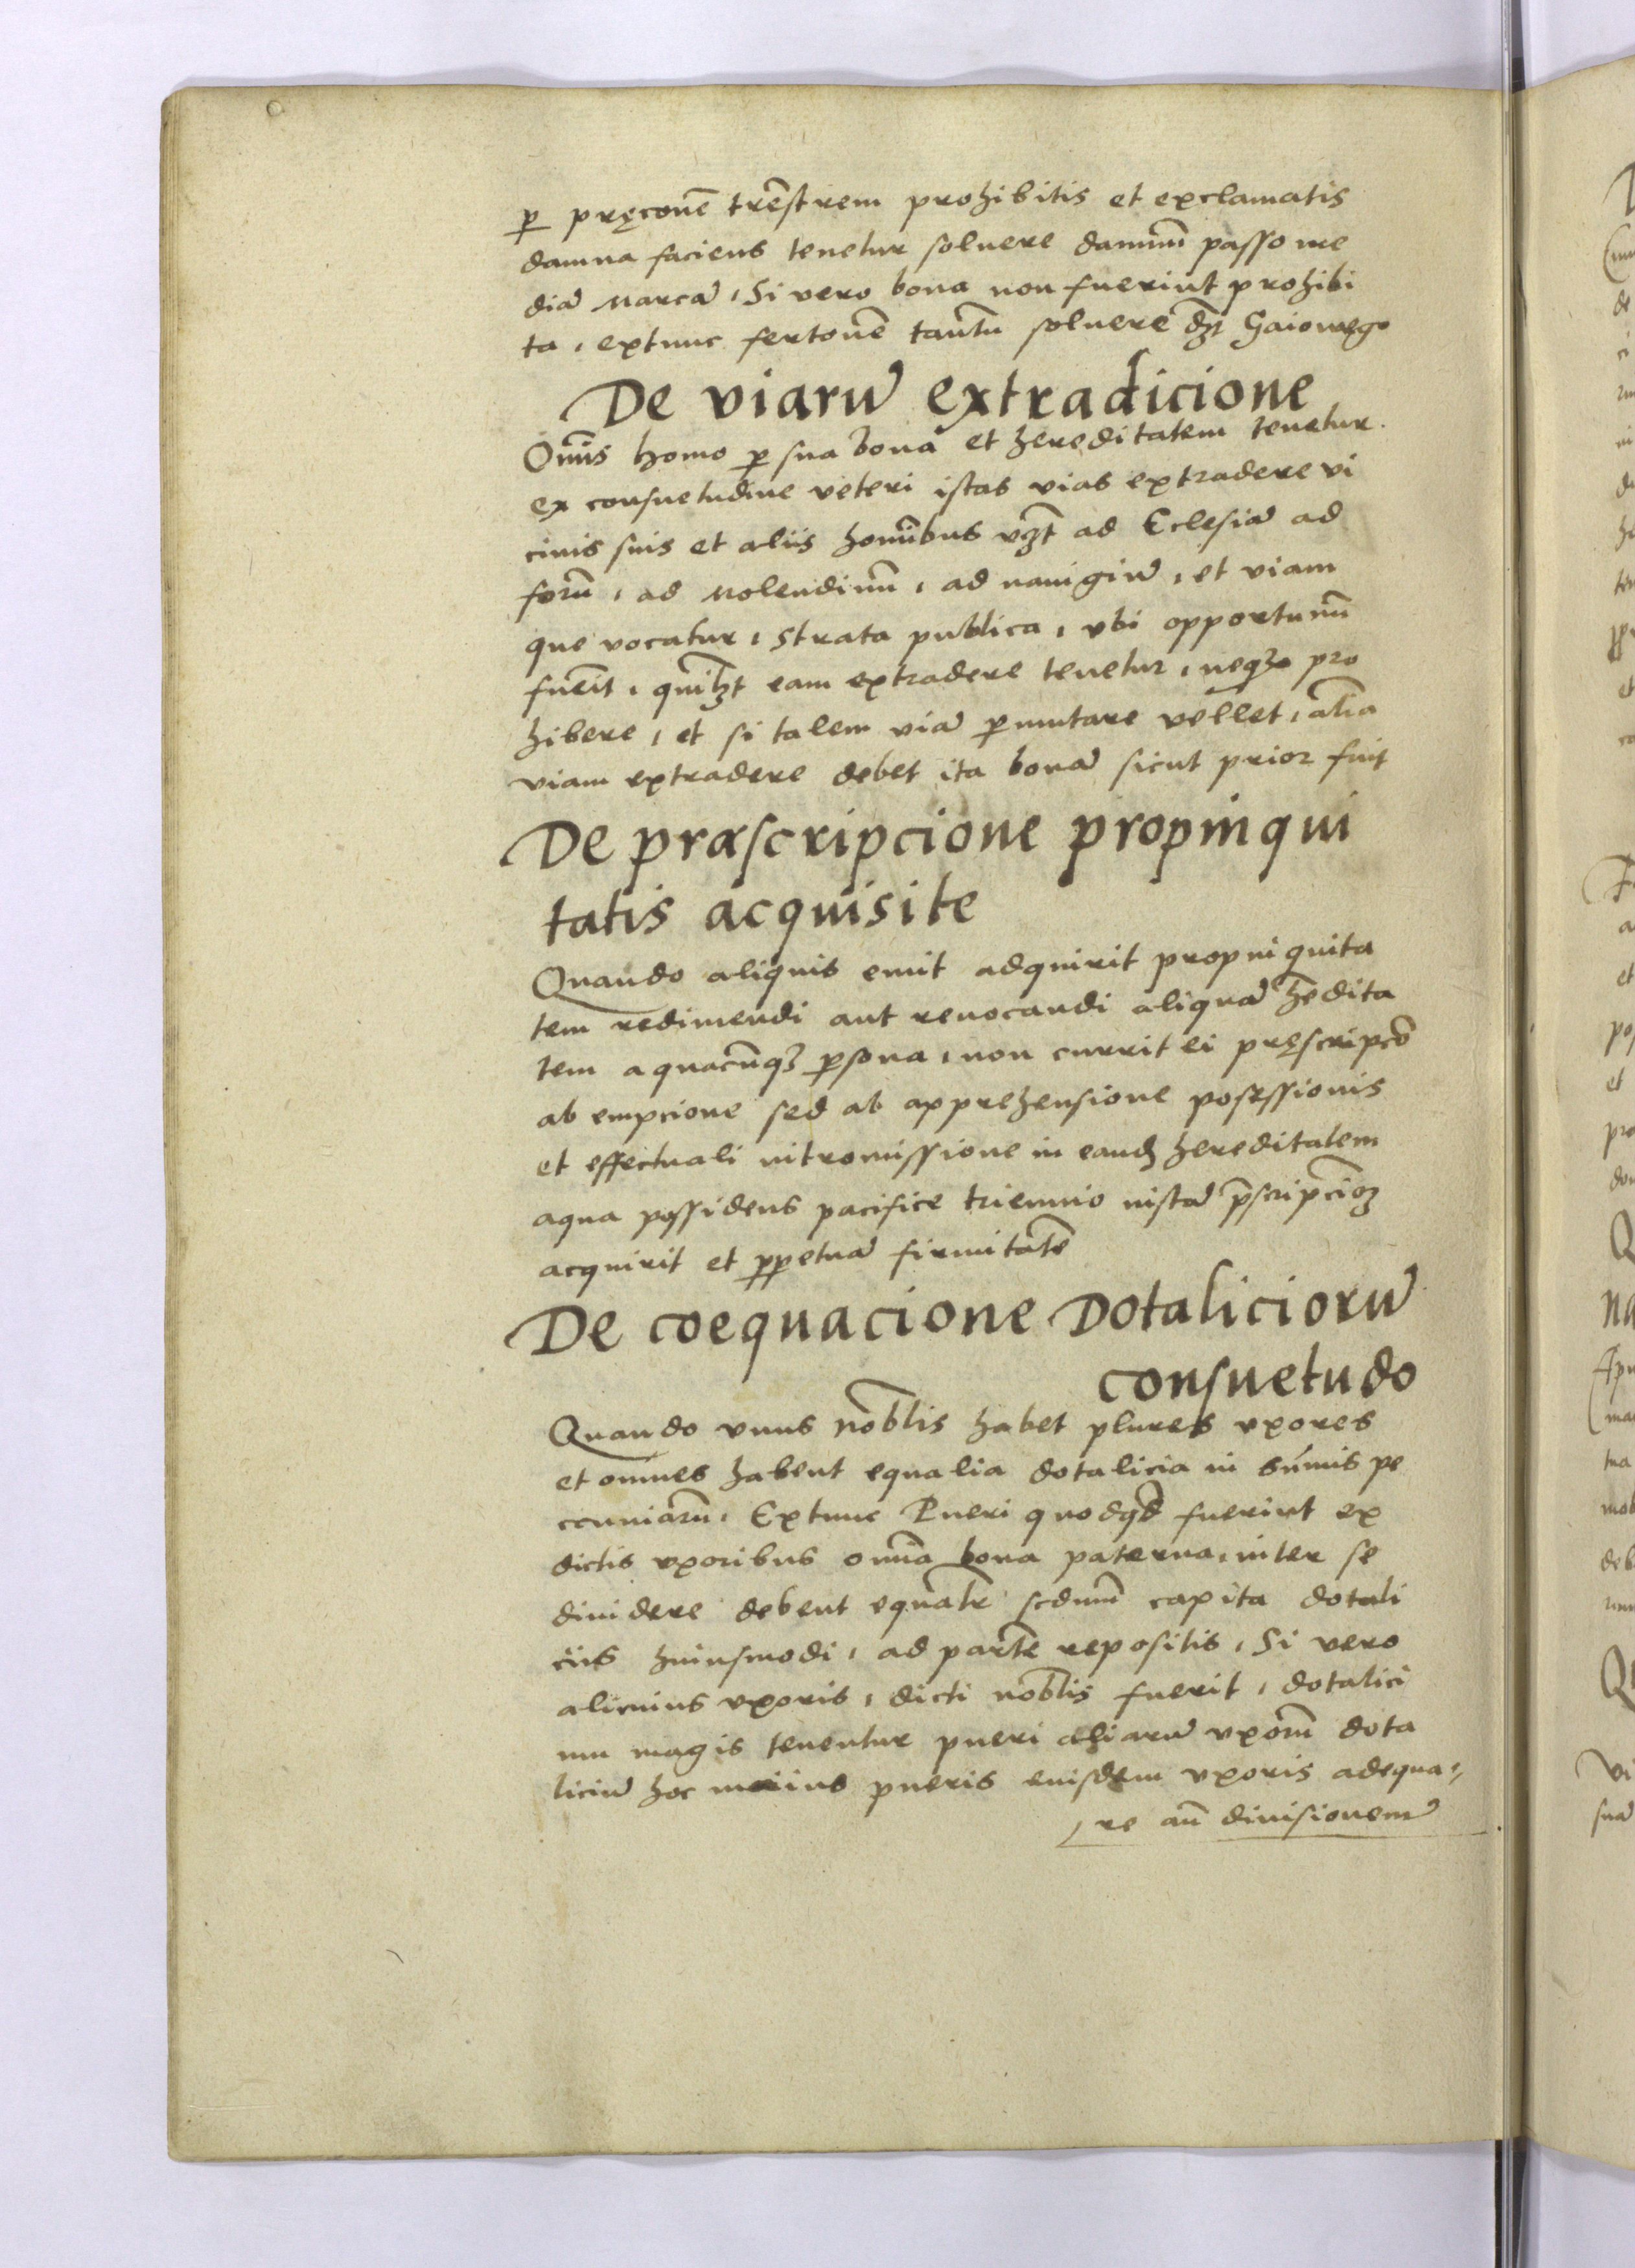 ꝑ pręconē trēstrem prohibitis et exclamatis
damna faciens tenetur soluere damnū passo me
diā Marcā, Si vero bona non fuerint prohibi
ta, extunc fertonē tantū soluere dꝫt Gaiowego
De viarū extradicione
Om̄is homo ꝑ sua bona et hereditatem tenetur
ex consuetudine veteri istas vias extradere vi
cinis suis et aliis hom̄ibus vꝫt ad Eclesiā ad
forū, ad Molendinū, ad nauigiū, et viam
que vocatur, strata publica, vbi opportunū
fuerit, quilꝫt eam extradere tenetur, neqꝫ pro
hibere, et si talem viā ꝑmutare vellet, aliā
viam extradere debet ita bonā sicut prior fuit
De præscripcione propinqui
tatis acquisite
Quando aliquis emit adquirit propinquita
tem redimendi aut reuocandi aliquā hēdita
tem a quacūqꝫ ꝑsona, non currit ei pręscripcō
ab empcione sed ab apprehensione posessionis
et effectuali intromissione in eandꝫ hereditatem
aqua possidens pacifice triennio instā p̄scripcioꝫ
acquirit et ꝑpetuā firmitatē
De coequacione Dotaliciorū
consuetudo
Quando vnus nob̄lis habet plures vxores
et omnes habent equalia dotalicia in sūmis pe
ccuniarū, Extunc Pueri quodqd̄ fuerint ex
dictis vxoribus om̄ia bona paterna, inter se
diuidere debent equalr̄ scdnm̄ capita dotali
ciis huiusmodi, ad partē repositis, Si vero
alicuius vxoris, dicti nob̄lis fuerit, dotalici
um magis tenentur pueri aliarū vxorū dota
liciū hoc maiius pueris euisdem vxoris adequa-
re an̄ diuisionem